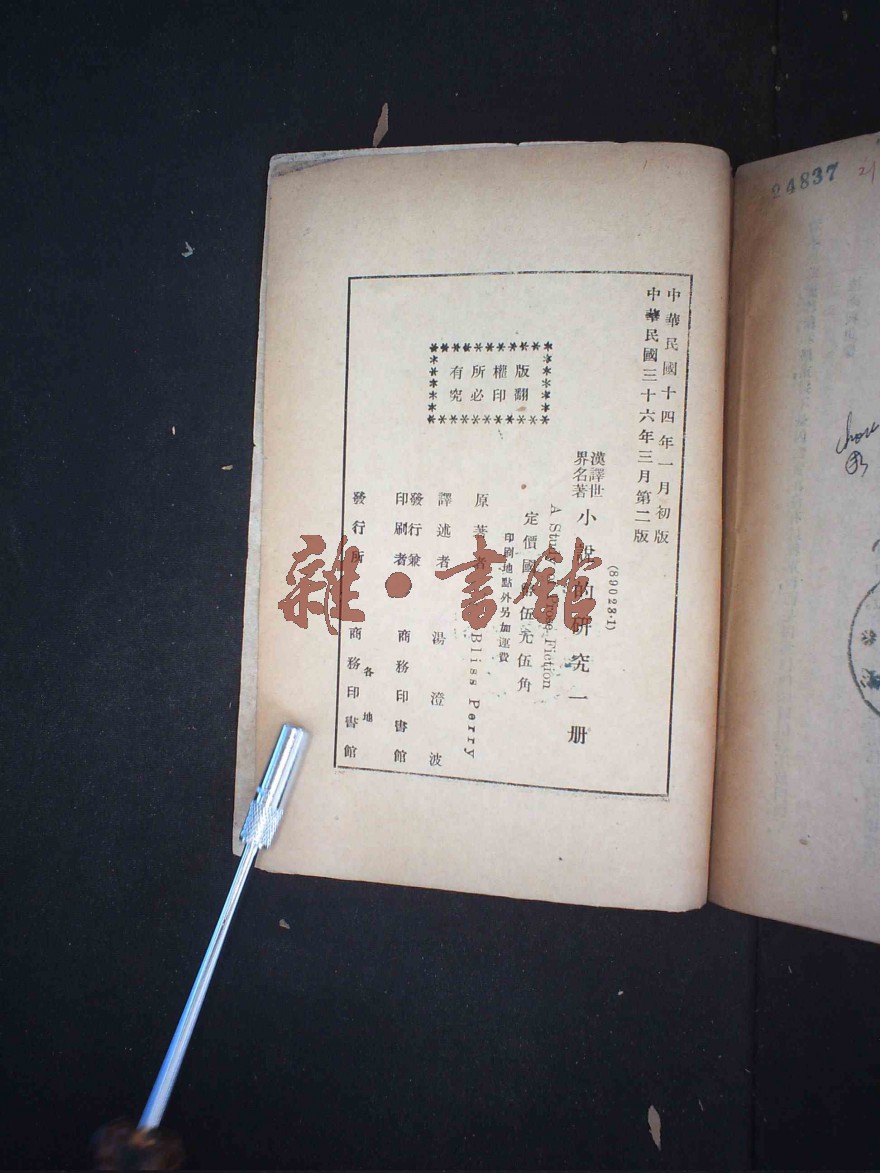 中華民國十四年一月初版
中華民國三十六年三月第二版
(89028·1)
漢譯世界名著 小說的研究 一册
A Study of Prose Fiction
定價國幣伍元伍角
印刷地點外另加運費
版權所有
翻印必究
原著者 Bliss Perry
譯述者 湯澄波
發行兼印刷者 商務印書館
發行所 各地 商務印書館
雜·書館
24837
21